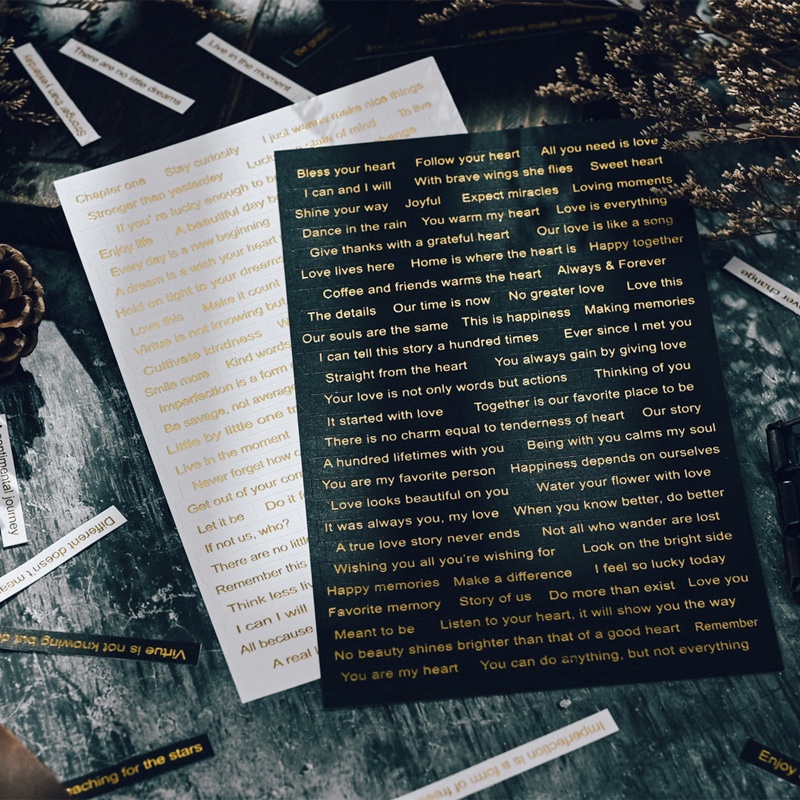 Stronger than yesterday
There are no little dreams
Live in the moment
just wanna make nice things
I just wanna make nice things
Chapter one Stay curiosity To live
Stronger than yesterday Luck state of mind
If you're lucky enough to be change
Enjoy life A beautiful day
Every day is a new beginning
A dream is a wish your heart
Hold on tight to your dreams
Love this Make it count
Virtue is not knowing but
Cultivate kindness
Smile more Kind words
Imperfection is a form
Be savage, not average
Little by little one
Live in the moment
Never forget how
Get out of your
Let it be Do it
If not us, who?
There are no little
Remember this
Think less
I can I will
All because
A real
Bless your heart Follow your heart All you need is love
I can and I will With brave wings she flies Sweet heart
Shine your way Joyful Expect miracles Loving moments
Dance in the rain You warm my heart Love is everything
Give thanks with a grateful heart Our love is like a song
Love lives here Home is where the heart is Happy together
Coffee and friends warms the heart Always & Forever
The details Our time is now No greater love Love this
Our souls are the same This is happiness Making memories
I can tell this story a hundred times Ever since I met you
Straight from the heart You always gain by giving love
Your love is not only words but actions Thinking of you
It started with love Together is our favorite place to be
There is no charm equal to tenderness of heart Our story
A hundred lifetimes with you Being with you calms my soul
You are my favorite person Happiness depends on ourselves
Love looks beautiful on you Water your flower with love
It was always you, my love When you know better, do better
A true love story never ends Not all who wander are lost
Wishing you all you're wishing for Look on the bright side
Happy memories Make a difference I feel so lucky today
Favorite memory Story of us Do more than exist Love you
Meant to be Listen to your heart, it will show you the way
No beauty shines brighter than that of a good heart Remember
You are my heart You can do anything, but not everything
ver change
A sentimental journey
Different doesn't mea
Virtue is not knowing but d
eaching for the stars
Imperfection is a form of free
Enjoy